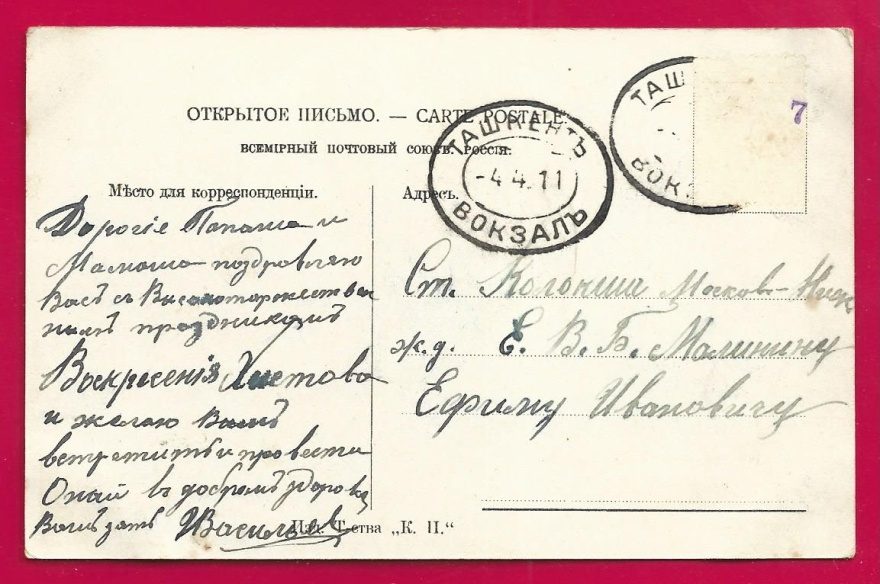 ОТКРЫТОЕ ПИСЬМО. — CARTE POSTALE.
ВСЕМІРНЫЙ ПОЧТОВЫЙ СОЮЗЪ. РОССІЯ.
ТАШКЕНТЪ
-4.4.11
ВОКЗАЛЪ
ТАШ
ВОКЗ
7
Мѣсто для корреспонденціи.
Дорогіе Папаша и
Мамаша поздровляю
Васъ съ Высокоторжествен
нымъ праздникомъ
Воскресенія Христова
и желаю Вамъ
встретить и провести
Оный въ добромъ здоров
Вашъ зять И Васильев
Изд. Т-ства „К. П.“
Адресъ.
Ст. Московъ-Ниж
ж.д. Е. В. Б. Малинину
Ефиму Ивановичу